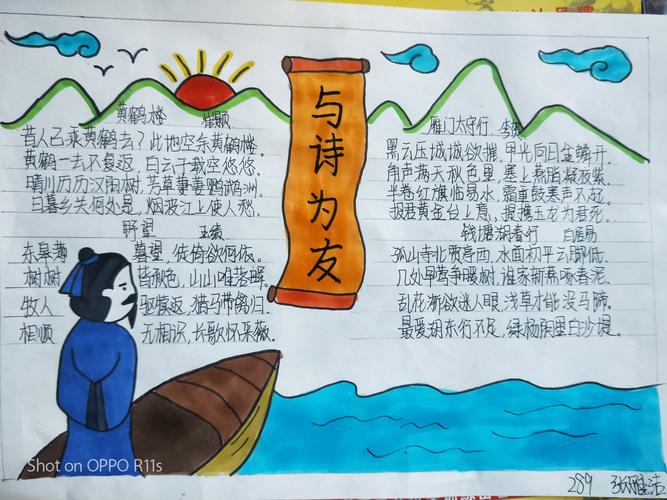 与诗为友
黄鹤楼 崔颢
昔人已乘黄鹤去?此地空余黄鹤楼。
黄鹤一去不复返,白云千载空悠悠。
晴川历历汉阳树,芳草萋萋鹦鹉洲。
日暮乡关何处是,烟波江上使人愁。
野望 王绩
东皋薄暮望,徙倚欲何依。
树树皆秋色,山山唯落晖。
牧人驱犊返,猎马带禽归。
相顾无相识,长歌怀采薇。
雁门太守行 李贺
黑云压城城欲摧,甲光向日金鳞开。
角声满天秋色里,塞上燕脂凝夜紫。
半卷红旗临易水,霜重鼓寒声不起。
报君黄金台上意,提携玉龙为君死。
钱塘湖春行 白居易
孤山寺北贾亭西,水面初平云脚低。
几处早莺争暖树,谁家新燕啄春泥。
乱花渐欲迷人眼,浅草才能没马蹄。
最爱湖东行不足,绿杨阴里白沙堤。
Shot on OPPO R11s
289